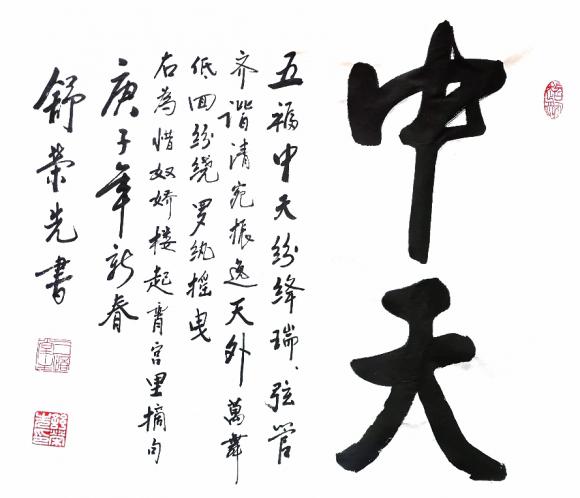 中天
五福中天纷绛瑞、弦管
齐谐清宛振逸天外萬舞
低回纷绕罗纨摇曳
右為惜奴娇楼起霄宫里摘句
庚子年新春
舒荣先書